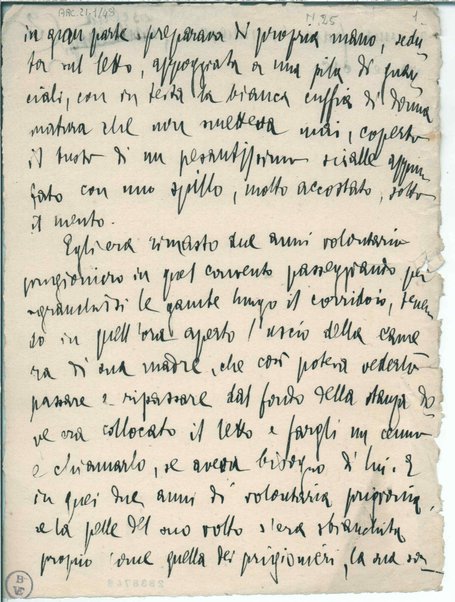 ARC.21.1/48
N. 25
1
in gran parte preparava di propria mano, sedu
ta sul letto, appoggiata a una pila di guan
ciali, con in testa la bianca cuffia di donna
matura che non metteva mai, coperto
il busto di un pesantissimo scialle appun
tato con uno spillo, molto accostato, sotto
il mento.
Egli era rimasto due anni volontario
prigioniero in quel convento passeggiando per
sgranchirsi le gambe lungo il corridoio, tenen
do in quell'ora aperto l'uscio della came
ra di sua madre, che così poteva vederlo
passare e ripassare dal fondo della stanza do
ve era collocato il letto e fargli un cenno
e chiamarlo, se aveva bisogno di lui. E
in quei due anni di volontaria prigionia,
se la pelle del suo volto s'era sbiancata
proprio come quella dei prigionieri, la sua